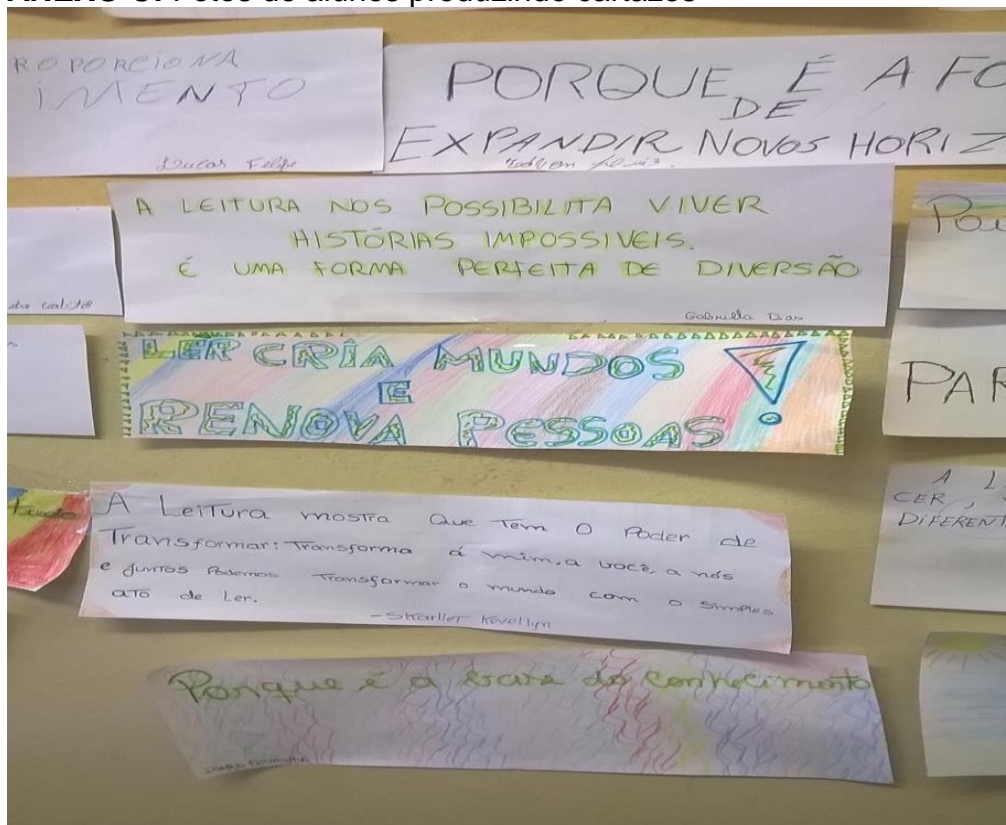 ROPORCIONA
IMENTO
Lucas Felipe
PORQUE É A FO
DE
EXPANDIR NOVOS HORIZ
A LEITURA NOS POSSIBILITA VIVER
HISTÓRIAS IMPOSSIVEIS.
É UMA FORMA PERFEITA DE DIVERSÃO
Gabriella Dias
LER CRIA MUNDOS
E
RENOVA PESSOAS!
PAR
A L
CER,
DIFERENT
tudo
A Leitura mostra Que Tem O Poder de
Transformar: Transforma á mim, a você, a nós
e juntos Podemos Transformar o mundo com o simples
ato de Ler.
Porque é a base do conhecimento